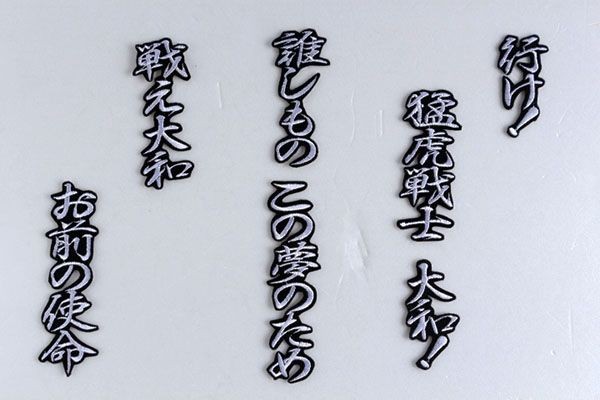 行け!
猛虎戦士 大和!
誰しもの この夢のため
戦え大和
お前の使命